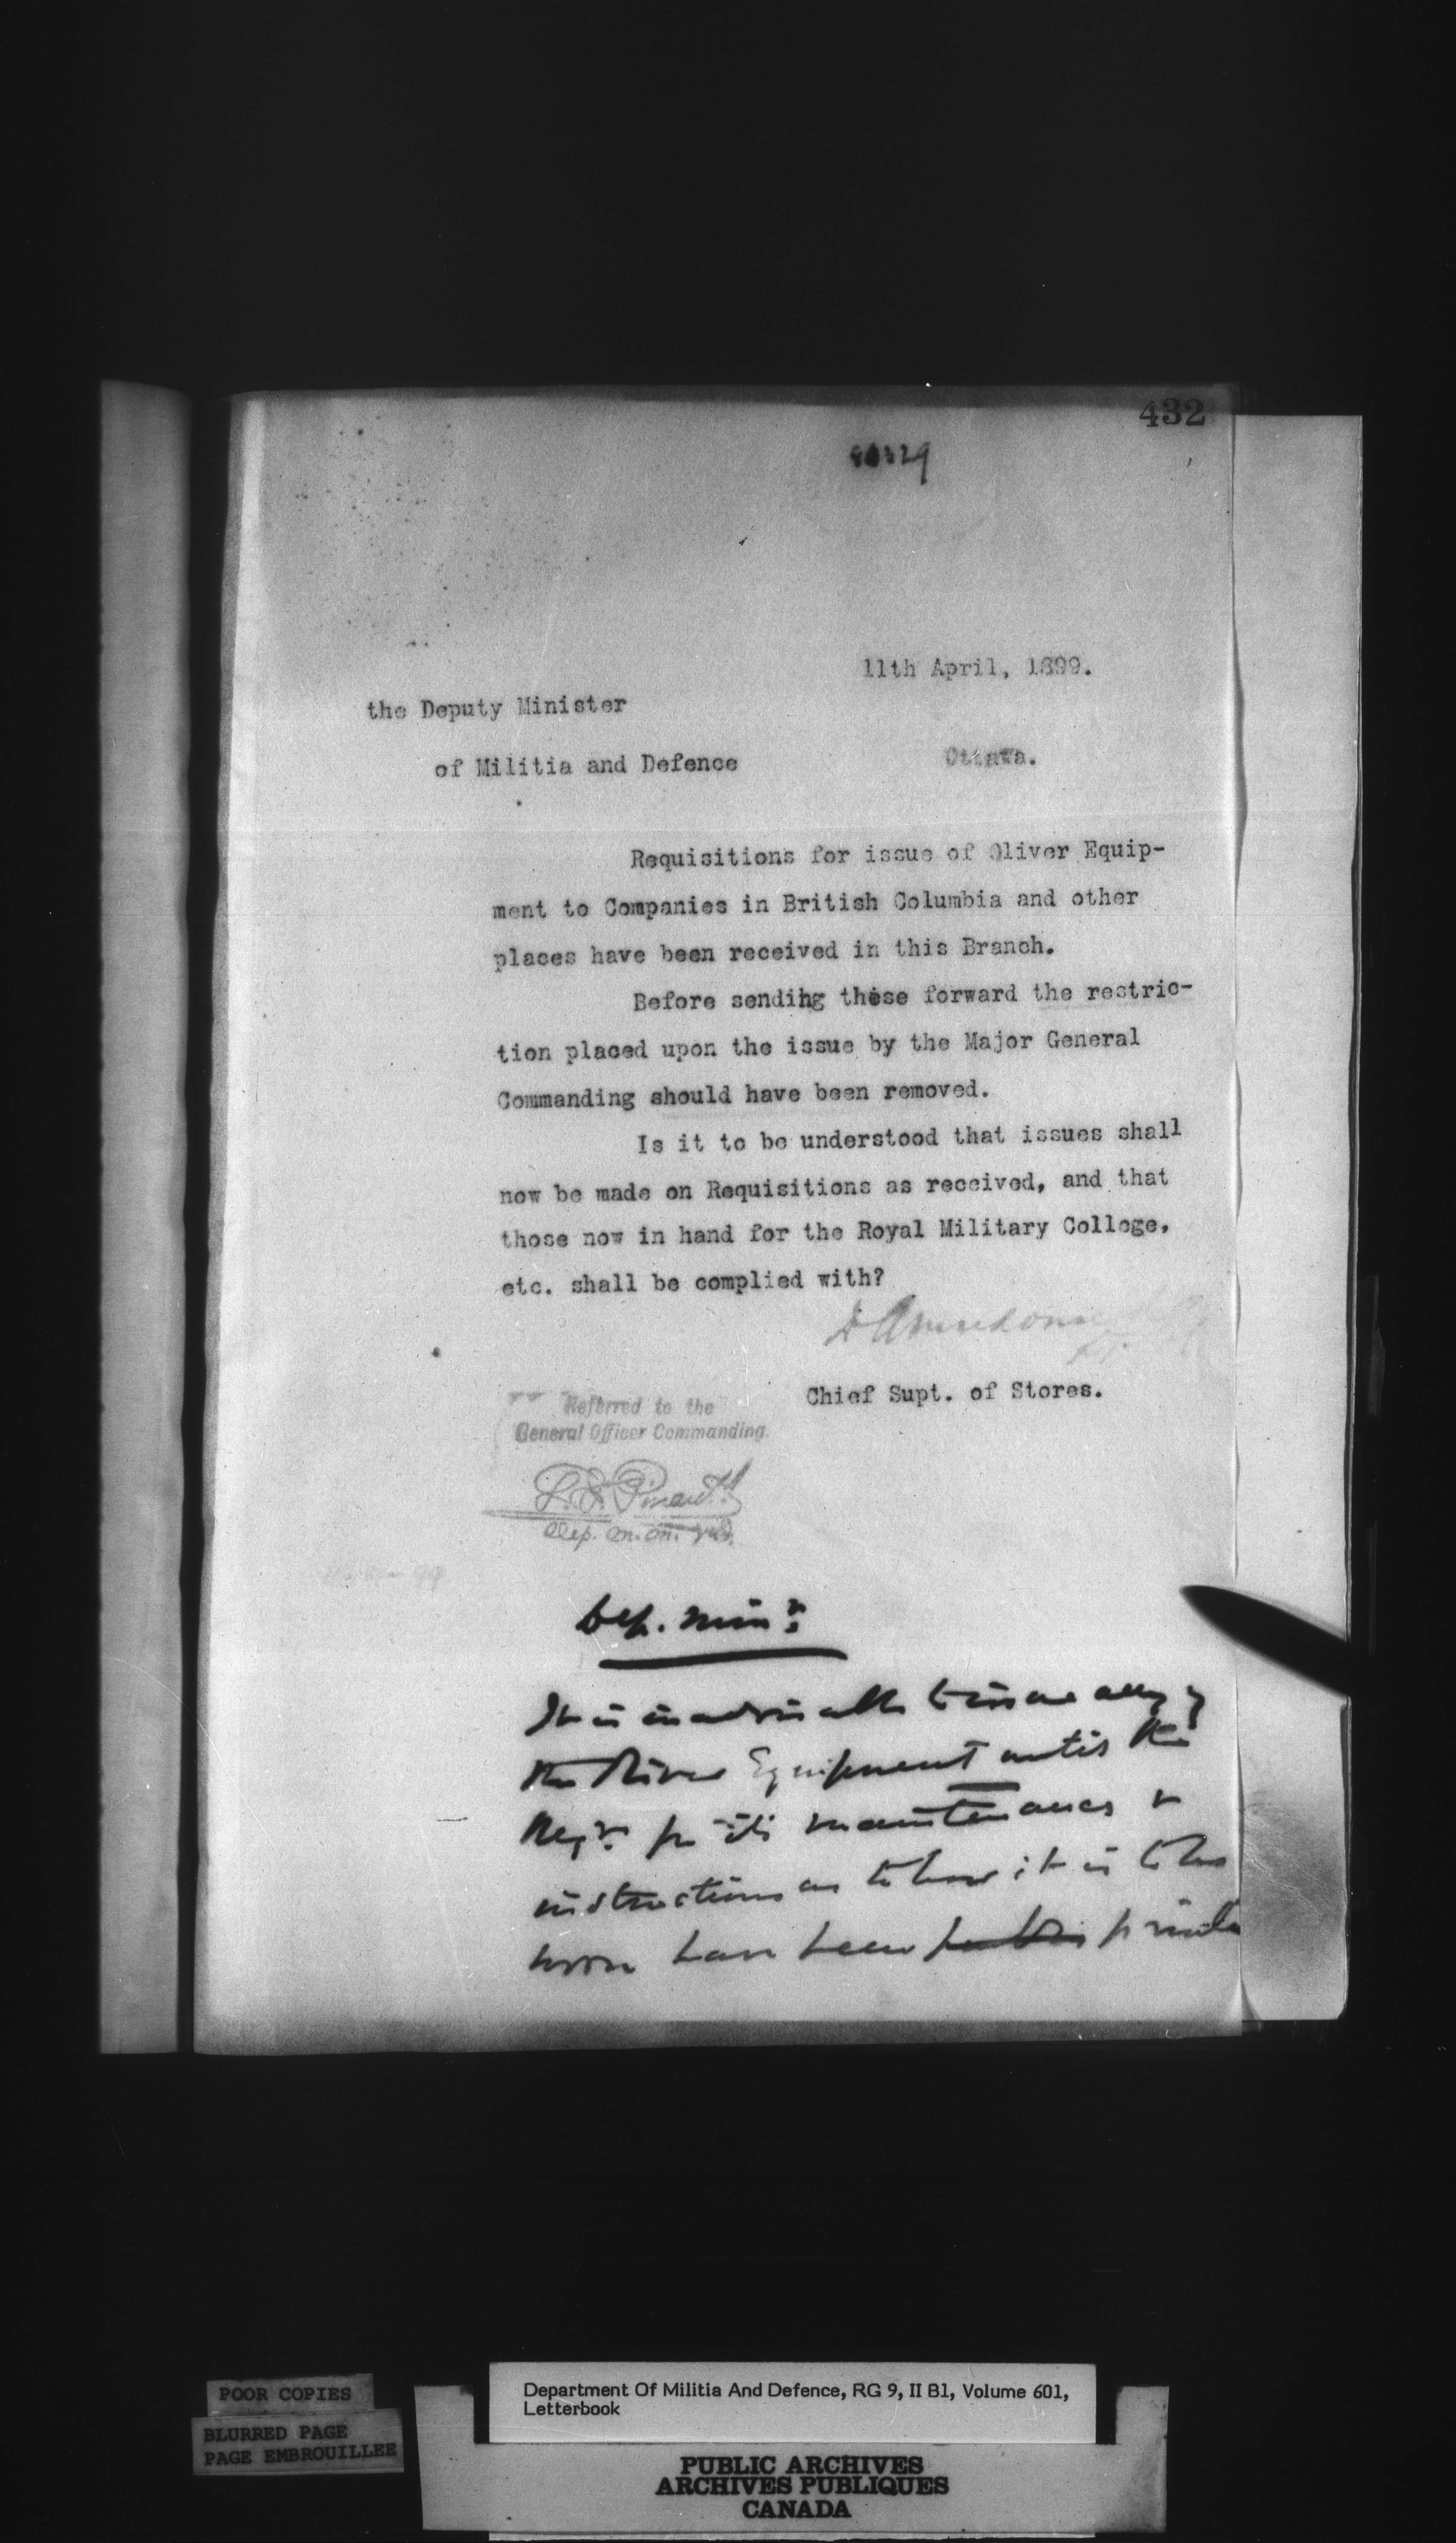 432
11th April, 1899.
the Deputy Minister
of Militia and Defence
Ottawa.
Requisitions for issue of Oliver Equip-
ment to Companies in British Columbia and other
places have been received in this Branch.
Before sending these forward the restric-
tion placed upon the issue by the Major General
Commanding should have been removed.
Is it to be understood that issues shall
now be made on Requisitions as received, and that
those now in hand for the Royal Military College,
etc. shall be complied with?
Chief Supt. of Stores.
Referred to the
General Officer Commanding.
Dep. Minr:
It is inadvisable to issue any of
the Oliver Equipment until the
Regns for its maintenance &
instructions as to how it is to be
worn have been printed
POOR COPIES
BLURRED PAGE
PAGE EMBROUILLEE
Department Of Militia And Defence, RG 9, II B1, Volume 601,
Letterbook
PUBLIC ARCHIVES
ARCHIVES PUBLIQUES
CANADA